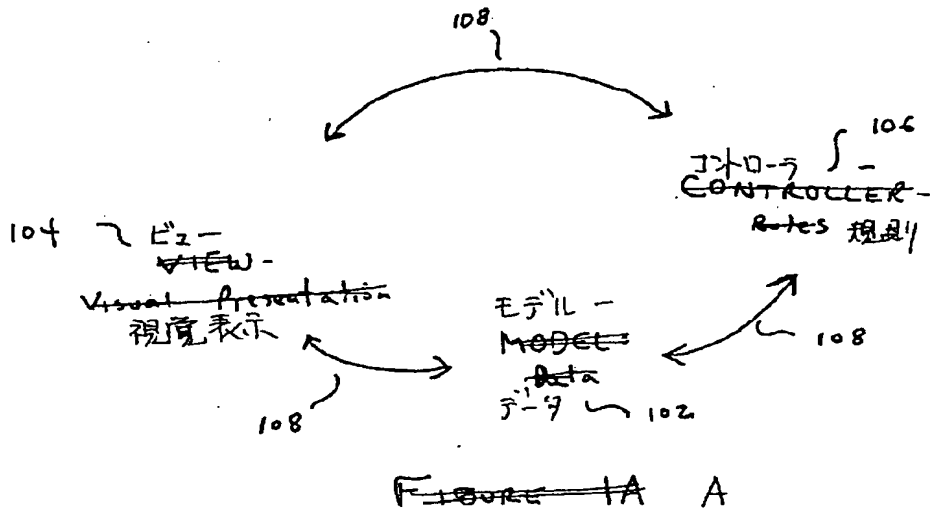 108
106
コントローラ -
CONTROLLER -
Rules 規則
104 ビュー
VIEW -
Visual Presentation
視覚表示
モデル -
MODEL -
Data
データ 102
108
108
FIGURE 1A A